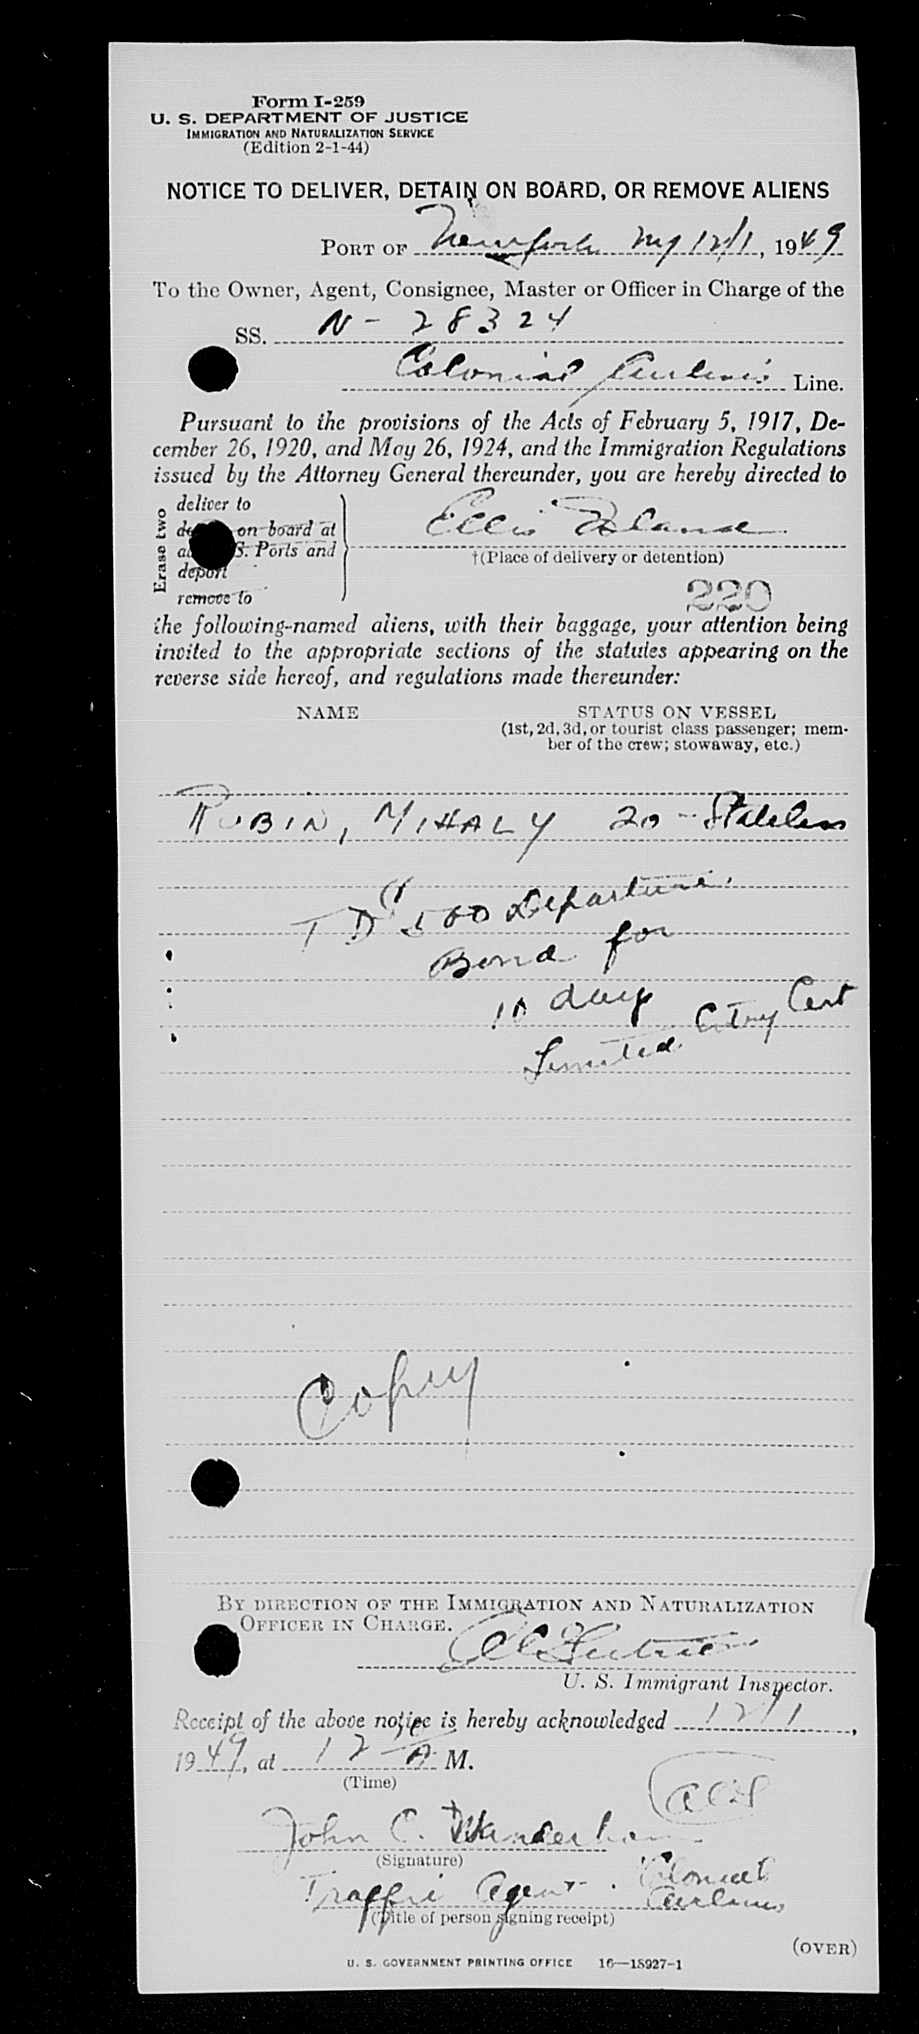 Form I-259
U. S. DEPARTMENT OF JUSTICE
IMMIGRATION AND NATURALIZATION SERVICE
(Edition 2-1-44)
NOTICE TO DELIVER, DETAIN ON BOARD, OR REMOVE ALIENS
PORT OF New York NY 12/1, 1949
To the Owner, Agent, Consignee, Master or Officer in Charge of the
SS. N - 28324
Colonial Airlines Line.
Pursuant to the provisions of the Acts of February 5, 1917, De-
cember 26, 1920, and May 26, 1924, and the Immigration Regulations
issued by the Attorney General thereunder, you are hereby directed to
Erase two
deliver to
on board at
S. Ports and
deport
remove to
Ellis Island
†(Place of delivery or detention)
220
the following-named aliens, with their baggage, your attention being
invited to the appropriate sections of the statutes appearing on the
reverse side hereof, and regulations made thereunder:
NAME STATUS ON VESSEL
(1st, 2d, 3d, or tourist class passenger; mem-
ber of the crew; stowaway, etc.)
RUBIN, MIHALY 20 - Stateless
TD $500 Departure
Bond for
10 day
Limited Entry Cert
Copy
BY DIRECTION OF THE IMMIGRATION AND NATURALIZATION
OFFICER IN CHARGE.
U. S. Immigrant Inspector.
Receipt of the above notice is hereby acknowledged 12/1,
1949, at 12 A M.
(Time)
John C.
(Signature)
Traffic Agent. Colonial
Airlines
(Title of person signing receipt)
(OVER)
U. S. GOVERNMENT PRINTING OFFICE 16—18927-1